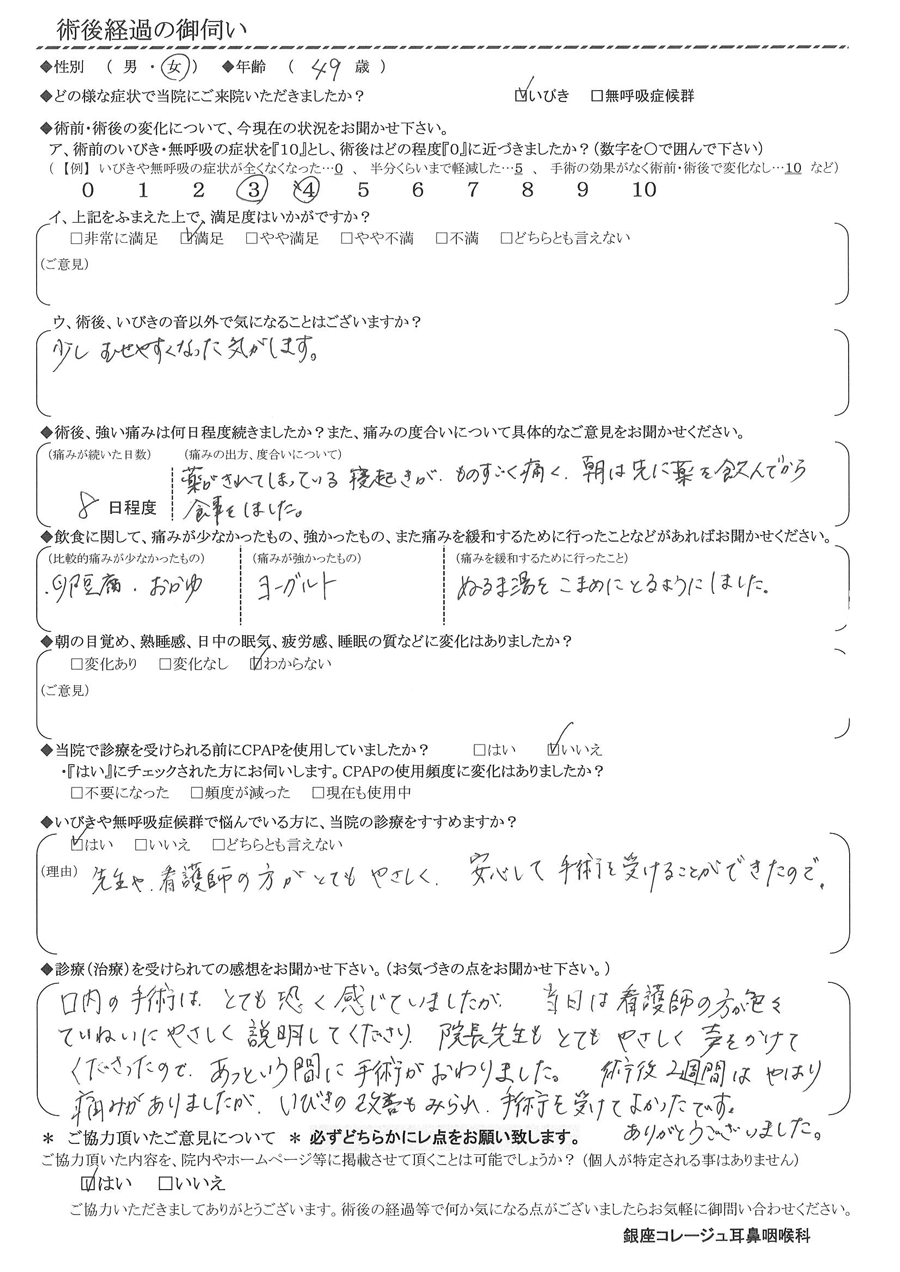 術後経過の御伺い
◆性別 ( 男 ・ 女 ) ◆年齢 ( 49 歳 )
◆どの様な症状で当院にご来院いただきましたか? ☑いびき □無呼吸症候群
◆術前・術後の変化について、今現在の状況をお聞かせ下さい。
ア、術前のいびき・無呼吸の症状を『10』とし、術後はどの程度『0』に近づきましたか?(数字を〇で囲んで下さい)
(【例】 いびきや無呼吸の症状が全くなくなった…0 、 半分くらいまで軽減した…5 、 手術の効果がなく術前・術後で変化なし…10 など)
0 1 2 3 4 5 6 7 8 9 10
イ、上記をふまえた上で、満足度はいかがですか?
□非常に満足 ☑満足 □やや満足 □やや不満 □不満 □どちらとも言えない
(ご意見)
ウ、術後、いびきの音以外で気になることはございますか?
少し むせやすくなった気がします。
◆術後、強い痛みは何日程度続きましたか?また、痛みの度合いについて具体的なご意見をお聞かせください。
(痛みが続いた日数) (痛みの出方、度合いについて)
薬がきれてしまっている 寝起きが、ものすごく痛く、朝は先に薬を飲んでから
8 日程度 食事をしました。
◆飲食に関して、痛みが少なかったもの、強かったもの、また痛みを緩和するために行ったことなどがあればお聞かせください。
(比較的痛みが少なかったもの) (痛みが強かったもの) (痛みを緩和するために行ったこと)
・卵豆腐・おかゆ ヨーグルト ぬるま湯を こまめに とるようにしました。
◆朝の目覚め、熟睡感、日中の眠気、疲労感、睡眠の質などに変化はありましたか?
□変化あり □変化なし ☑わからない
(ご意見)
◆当院で診療を受けられる前にCPAPを使用していましたか? □はい ☑いいえ
・『はい』にチェックされた方にお伺いします。CPAPの使用頻度に変化はありましたか?
□不要になった □頻度が減った □現在も使用中
◆いびきや無呼吸症候群で悩んでいる方に、当院の診療をすすめますか?
☑はい □いいえ □どちらとも言えない
(理由) 先生や、看護師の方がとても やさしく、 安心して 手術を受けることができたので。
◆診療(治療)を受けられての感想をお聞かせ下さい。(お気づきの点をお聞かせ下さい。)
口内の手術は、とても恐く感じていましたが、 当日は看護師の方が色々
ていねいにやさしく説明してくださり、院長先生もとても やさしく声をかけて
くださったので、あっという間に手術がおわりました。 術後2週間は やはり
痛みがありましたが、いびきの改善もみられ、手術を受けてよかったです。
ありがとうございました。
＊ ご協力頂いたご意見について ＊ 必ずどちらかにレ点をお願い致します。
ご協力頂いた内容を、院内やホームページ等に掲載させて頂くことは可能でしょうか? (個人が特定される事はありません)
☑はい □いいえ
ご協力いただきましてありがとうございます。術後の経過等で何か気になる点がございましたらお気軽に御問い合わせください。
銀座コレージュ耳鼻咽喉科